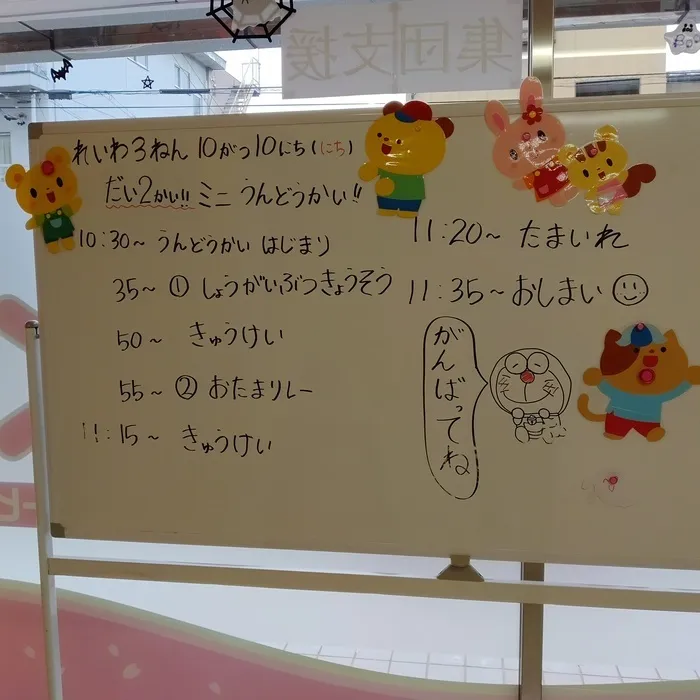 集団支援
れいわ3ねん 10がつ10にち(にち)
だい2かい!! ミニ うんどうかい!!
10:30~ うんどうかい はじまり
35~ ① しょうがいぶつきょうそう
50~ きゅうけい
55~ ② おたまリレー
11:15~ きゅうけい
11:20~ たまいれ
11:35~ おしまい
がんばってね